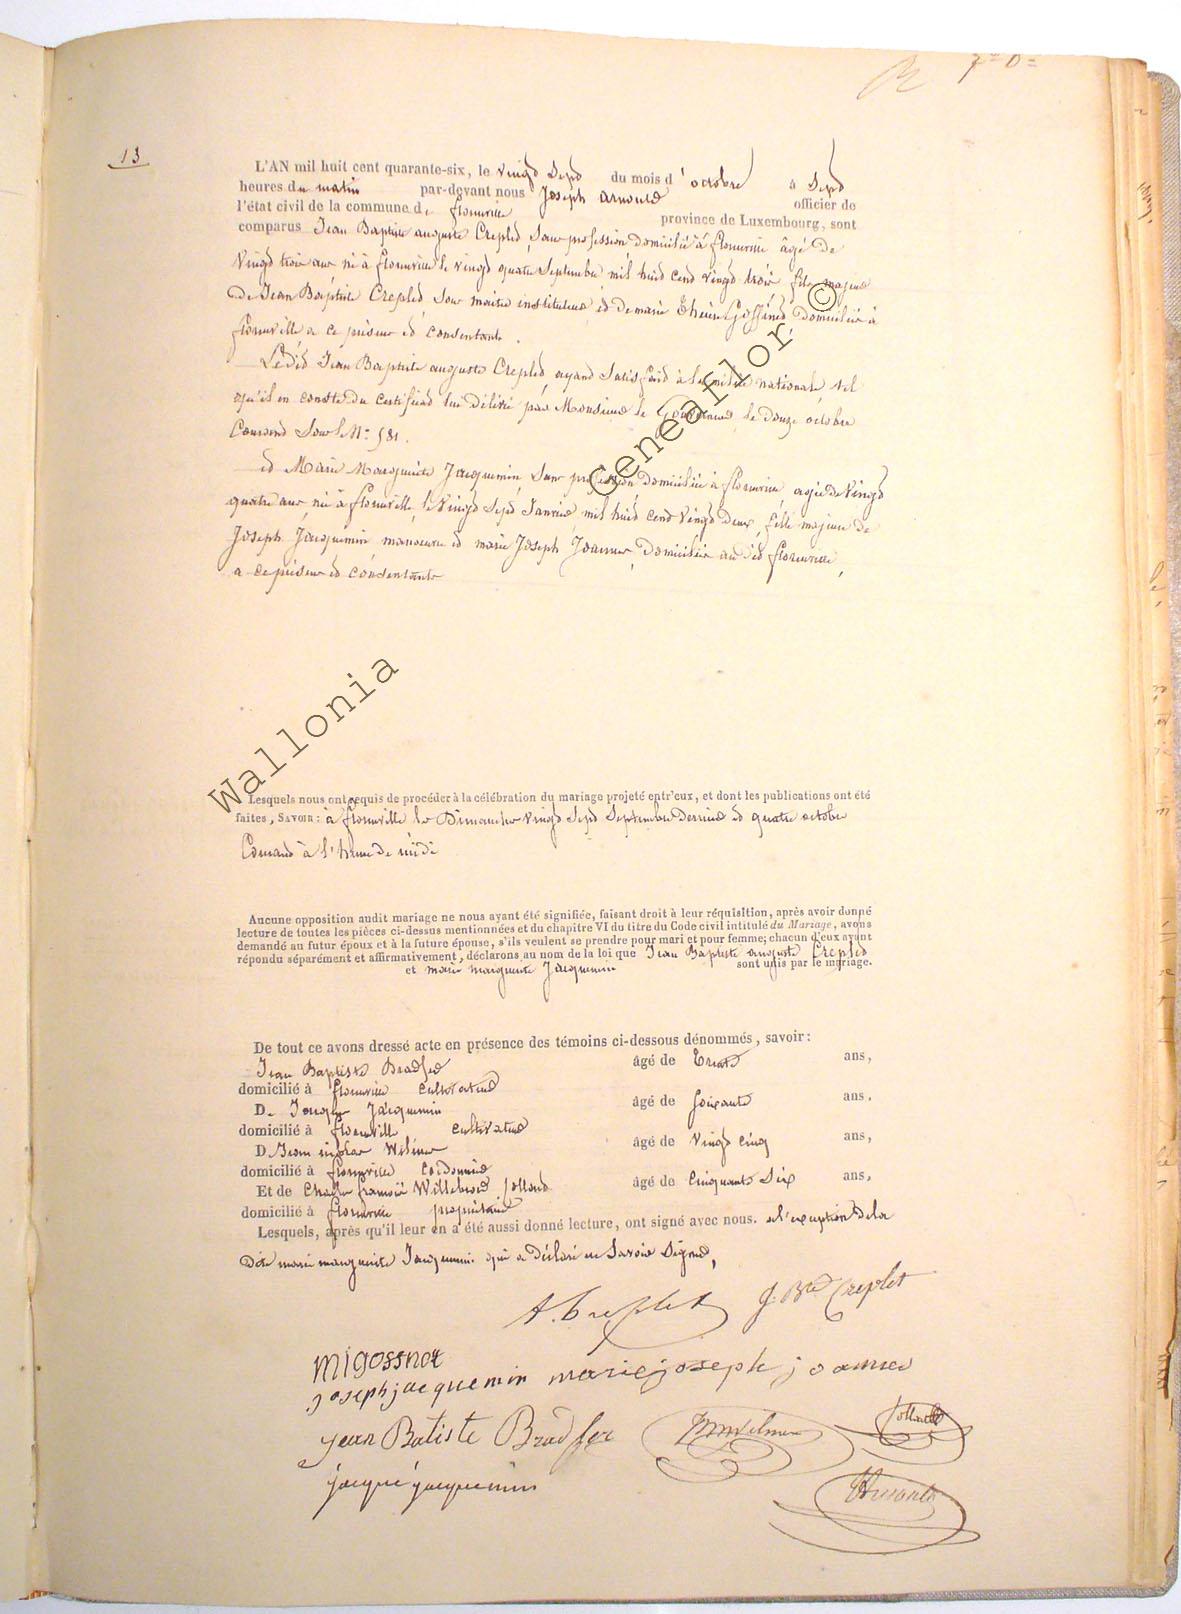 13
L'AN mil huit cent quarante-six, le vingt Sept du mois d'octobre à Sept
heures du matin par-devant nous Joseph arnould officier de
l'état civil de la commune de florenville province de Luxembourg, sont
comparus Jean Baptiste auguste Creplet, Sans profession domicilié à florenville âgé de
Vingt trois ans né à florenville le vingt quatre Septembre mil huit cent vingt trois fils majeur
de Jean Baptiste Creplet Sous maitre instituteur et de marie Gossinet Domiciliés à
florenville a ce présens et consentants.
Ledit Jean Baptiste auguste Creplet ayant Satisfait à la milice nationale tel
qu'il en conste du certificat lui délivré par Monsieur le Gouverneur le douze octobre
Courant Sous le N° 581.
et Marie Marguerite Jacquemin, Sans profession domiciliée à florenville, agée de Vingt
quatre ans née à florenville le Vingt Sept Janvier mil huit cent Vingt deux, fille majeure de
Joseph Jacquemin manoeuvre et marie Joseph Joannes, Domiciliés audit florenville,
a ce présens et consentants
Geneaflor ©
Wallonia
Lesquels nous ont requis de procéder à la célébration du mariage projeté entr'eux, et dont les publications ont été
faites, SAVOIR: à florenville les Dimanches vingt Sept Septembre dernier et quatre octobre
Courant à l'heure de midi
Aucune opposition audit mariage ne nous ayant été signifiée, faisant droit à leur réquisition, après avoir donné
lecture de toutes les pièces ci-dessus mentionnées et du chapitre VI du titre du Code civil intitulé du Mariage, avons
demandé au futur époux et à la future épouse, s'ils veulent se prendre pour mari et pour femme; chacun d'eux ayant
répondu séparément et affirmativement, déclarons au nom de la loi que Jean Baptiste auguste Creplet
et marie marguerite Jacquemin sont unis par le mariage.
De tout ce avons dressé acte en présence des témoins ci-dessous dénommés, savoir:
Jean Baptiste Bradfer âgé de trente ans,
domicilié à florenville cultivateur
De Jacques Jacquemin âgé de Soixante ans,
domicilié à florenville cultivateur
D. Jean nicolas Wilmer âgé de vingt cinq ans,
domicilié à florenville cordonnier
Et de Charles françois Willebrord Collard âgé de Cinquante Six ans,
domicilié à florenville propriétaire
Lesquels, après qu'il leur en a été aussi donné lecture, ont signé avec nous. a l'exception de la
dite marie marguerite Jacquemin qui a déclaré ne Savoir Signer,
A. Creplet J. Bte Creplet
migossnet
joseph jacquemin marie joseph joannes
jean Batiste Bradfer Collard
jacque jacquemin